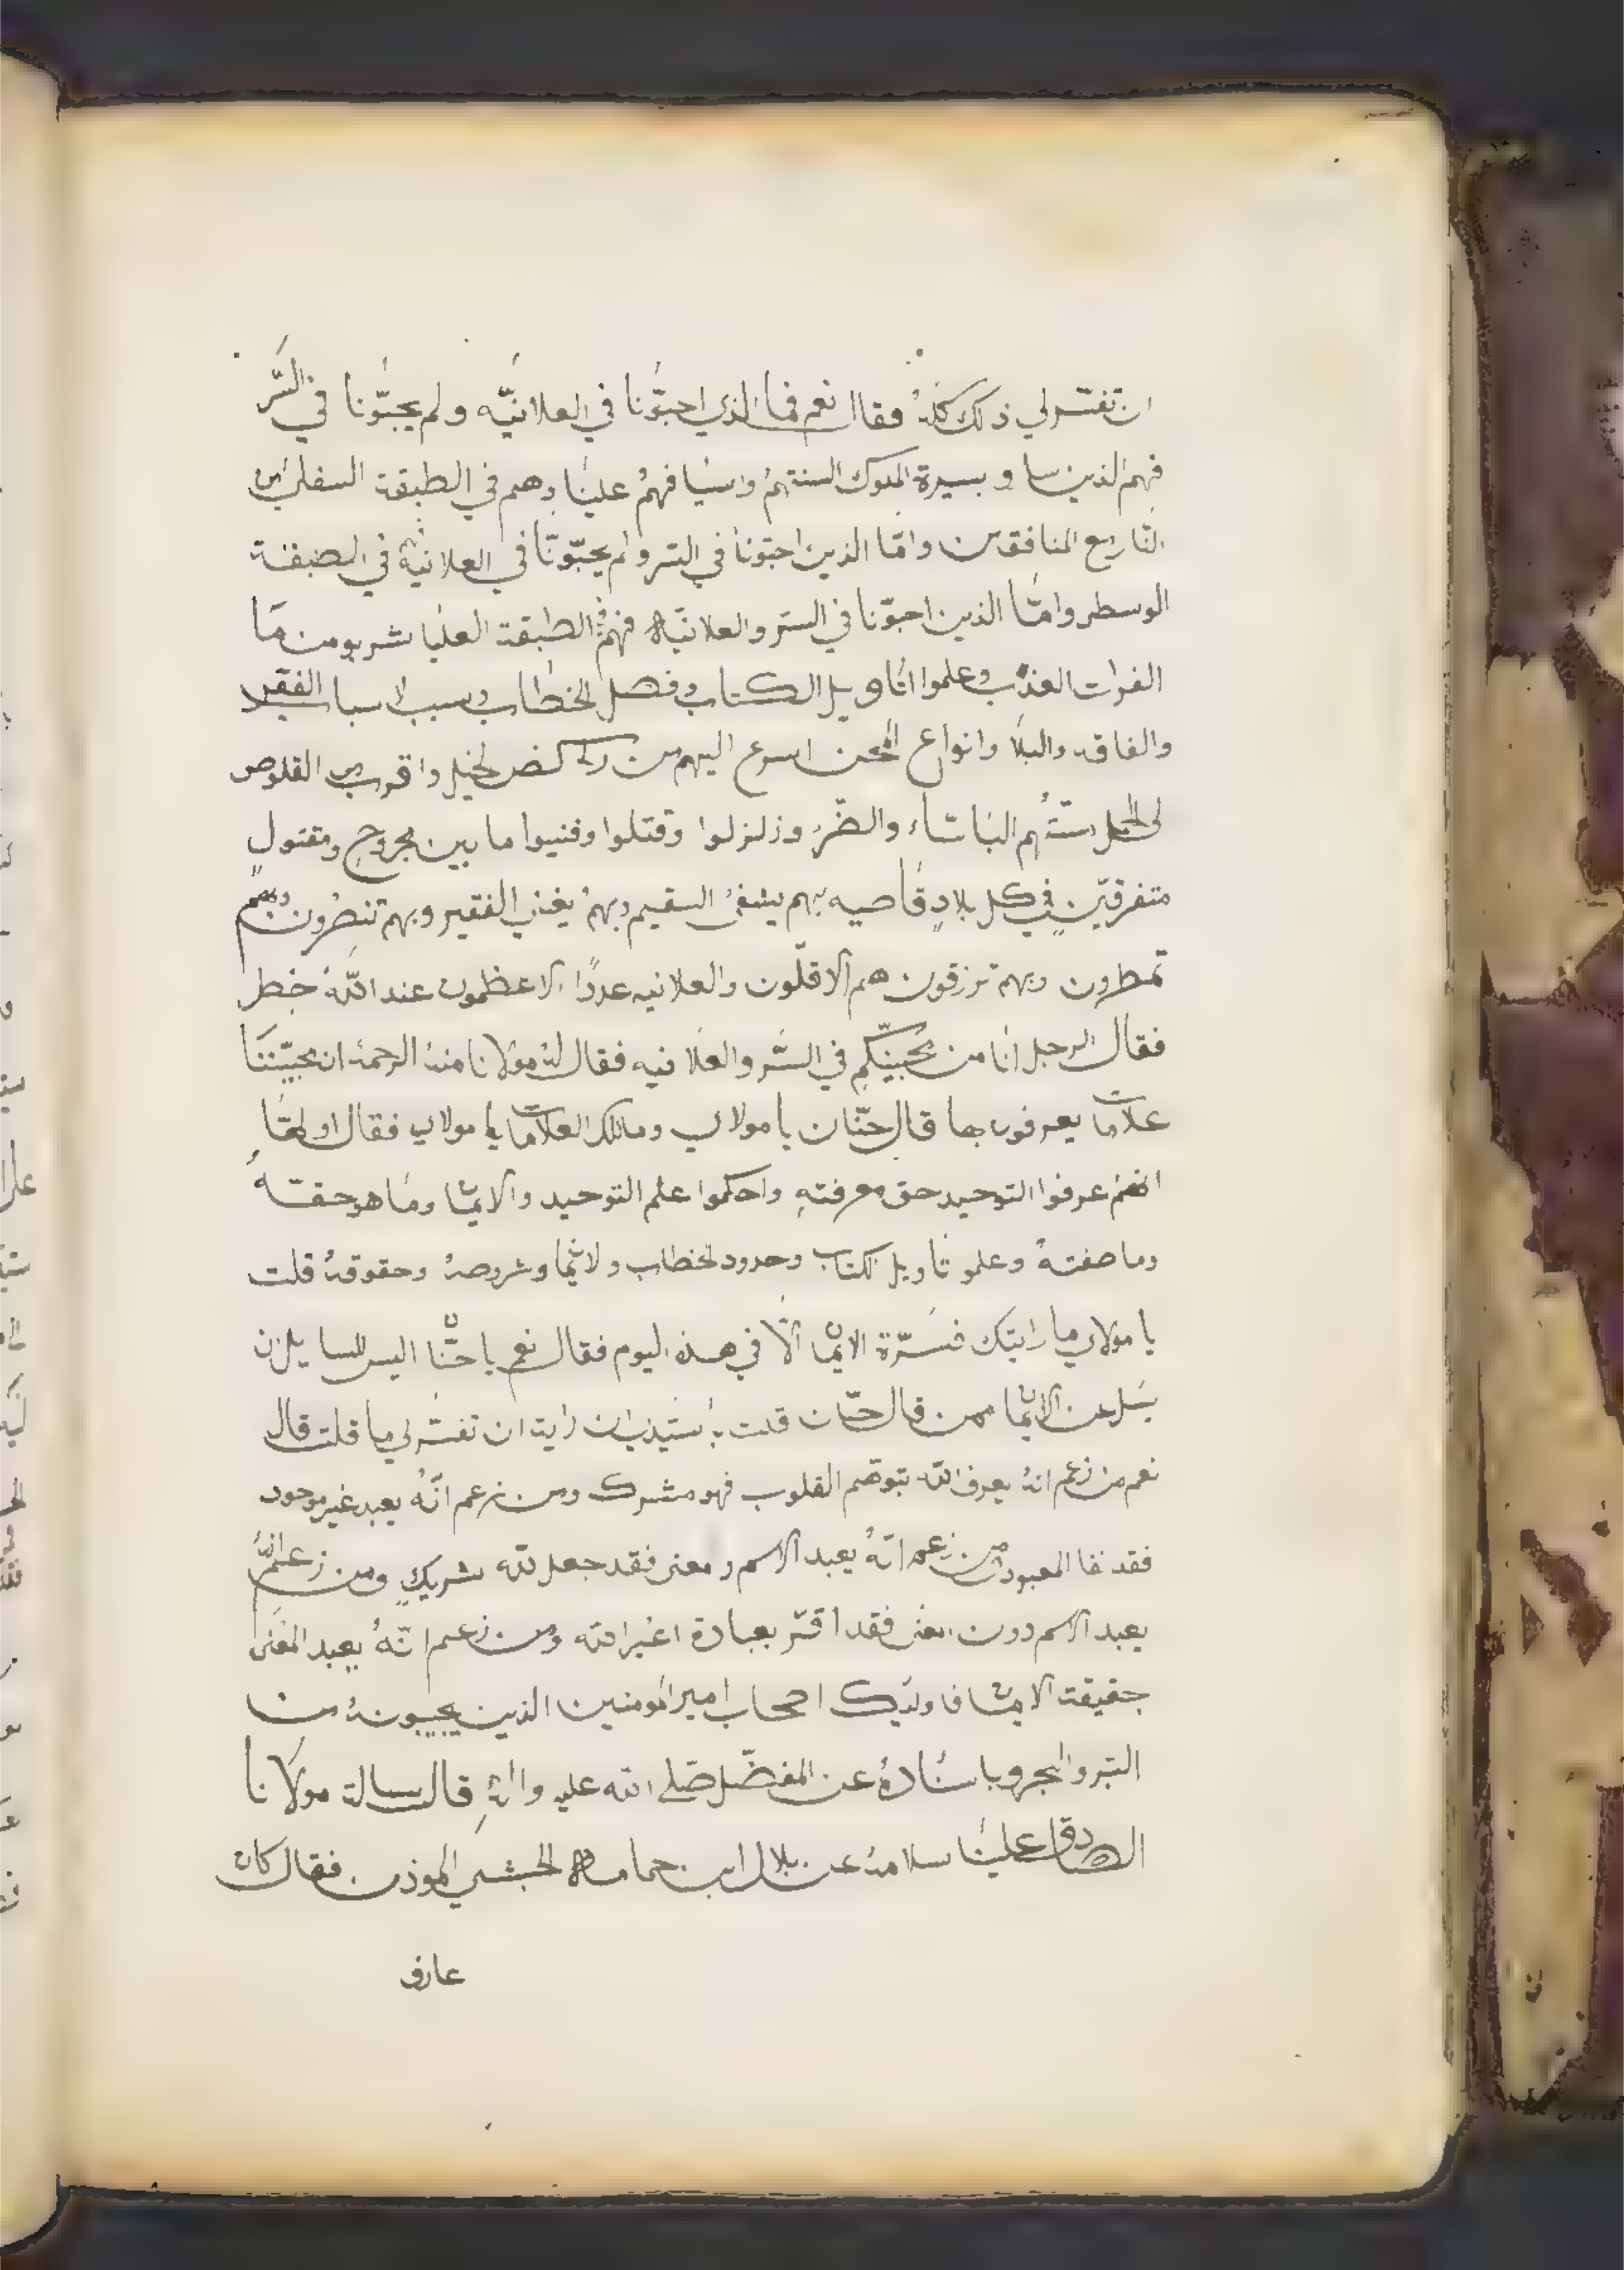 ان تفسّر لي ذلك كلّهُ فقال نعم فما الذي احبّونا في العلانيّه ولم يحبّونا في السَّر
فهم الذين ساو بسيرة الملوك السنتهمُ واسيافهمُ علينا وهم في الطبقة السفلي من
النار مع المنافقين وامّا الذين احبّونا في السر ولم يحبّونا في العلانيه في الطبقة
الوسطى وامّا الذين احبّونا في السر والعلانيّه فهم في الطبقة العليا شربو من ما
الفرات العذب وعلموا تاويل الكتاب وفصل الخطاب وسبب الاسباب الفقر
والفاقه والبلا وانواع المحن اسرع اليهم من ركض الخيل واقرب من القلوص
الى الحبل مسّتهم الباساء والضّر وزلزلوا وقتلوا وفنيوا ما بين مجروحٍ ومقتولٍ
متفرقيّن في كل بلادٍ قاصيه بهم يشفىُ السقيم وبهمُ يغني الفقير وبهم تنصرُون وبهم
تمطرون وبهم ترزقون هم الاقلّون والعلانيه عددًا الاعظمون عند اللّه خطر
فقال الرجل انا من محبيّكم في السَّر والعلانيه فقال لهُ مولانا منهُ الرحمة ان لمحبيّننا
علامات يعرفون بها قال حنّان يا مولاي وما تلك العلامات يا مولاي فقال اولها
انهم عرفوا التوحيد حق معرفتهِ واحكموا علم التوحيد والايمان وما هو حقّهُ
وما صفتهُ وعلمو تاويل الكتاب وحدود الخطاب والايمان وشروطهُ وحقوقهُ قلت
يا مولاي ما رايتك فسّرة الايمان الّا في هذه اليوم فقال نعم يا حنّان اليس للسايل ان
يسل عن الايمان ممن قال حنّان قلت يا سيّدي ان رايت ان تفسّر لي ما قلت قال
نعم من زعم انهُ يعرف اللّه بتوهّم القلوب فهو مشرك ومن زعم انّهُ يعبد غير موجود
فقد نفا المعبود ومن زعم انّهُ يعبد الاسم ومعنى فقد جعل للّه شريكٍ ومن زعم انّهُ
يعبد الاسم دون المعنى فقد اقرّ بعبادة اغير اللّه ومن زعم انّهُ يعبد المعَنى
حقيقت الايمان فاوليك اصحاب امير المومنين الذين يجيبونهُ من
البّر والبحر وباسنادهُ عن المفضّل صّلي اللّه عليهِ والهِ قال سالت مولانا
الصادق علينا سلامهُ عن بلال ابن حمامه الحبشي الموذن فقال كان
عارف